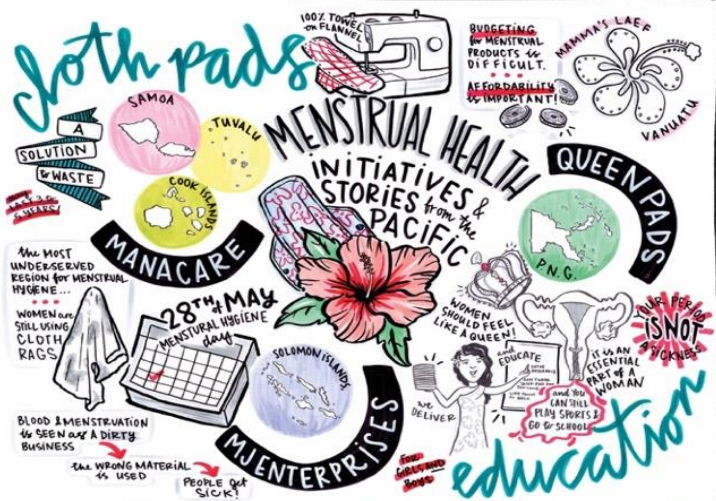 cloth pads
100% TOWEL
or FLANNEL
BUDGETING
for MENSTRUAL
PRODUCTS is
DIFFICULT.
AFFORDABILITY
is IMPORTANT!
MAMMA'S LAEF
VANUATU
A
SOLUTION
to WASTE
SAMOA
TUVALU
COOK ISLANDS
MANACARE
MENSTRUAL HEALTH
INITIATIVES &
STORIES from the
PACIFIC
QUEEN PADS
P.N.G.
the MOST
UNDER-SERVED
REGION for MENSTRUAL
HYGIENE...
WOMEN are
STILL USING
CLOTH
RAGS
28TH of MAY
MENSTURAL HYGIENE
day
SOLOMON ISLANDS
MJ ENTERPRISES
WOMEN
SHOULD FEEL
LIKE A QUEEN!
and
EDUCATE
WE
DELIVER
YOUR PERIOD
IS NOT
A SICKNESS
IT IS AN
ESSENTIAL
PART of A
WOMAN
and YOU
CAN STILL
PLAY SPORTS &
GO to SCHOOL
BLOOD & MENSTRUATION
is SEEN as A DIRTY
BUSINESS
the WRONG MATERIAL
is USED
PEOPLE get
SICK!
FOR
GIRLS AND
BOYS
education